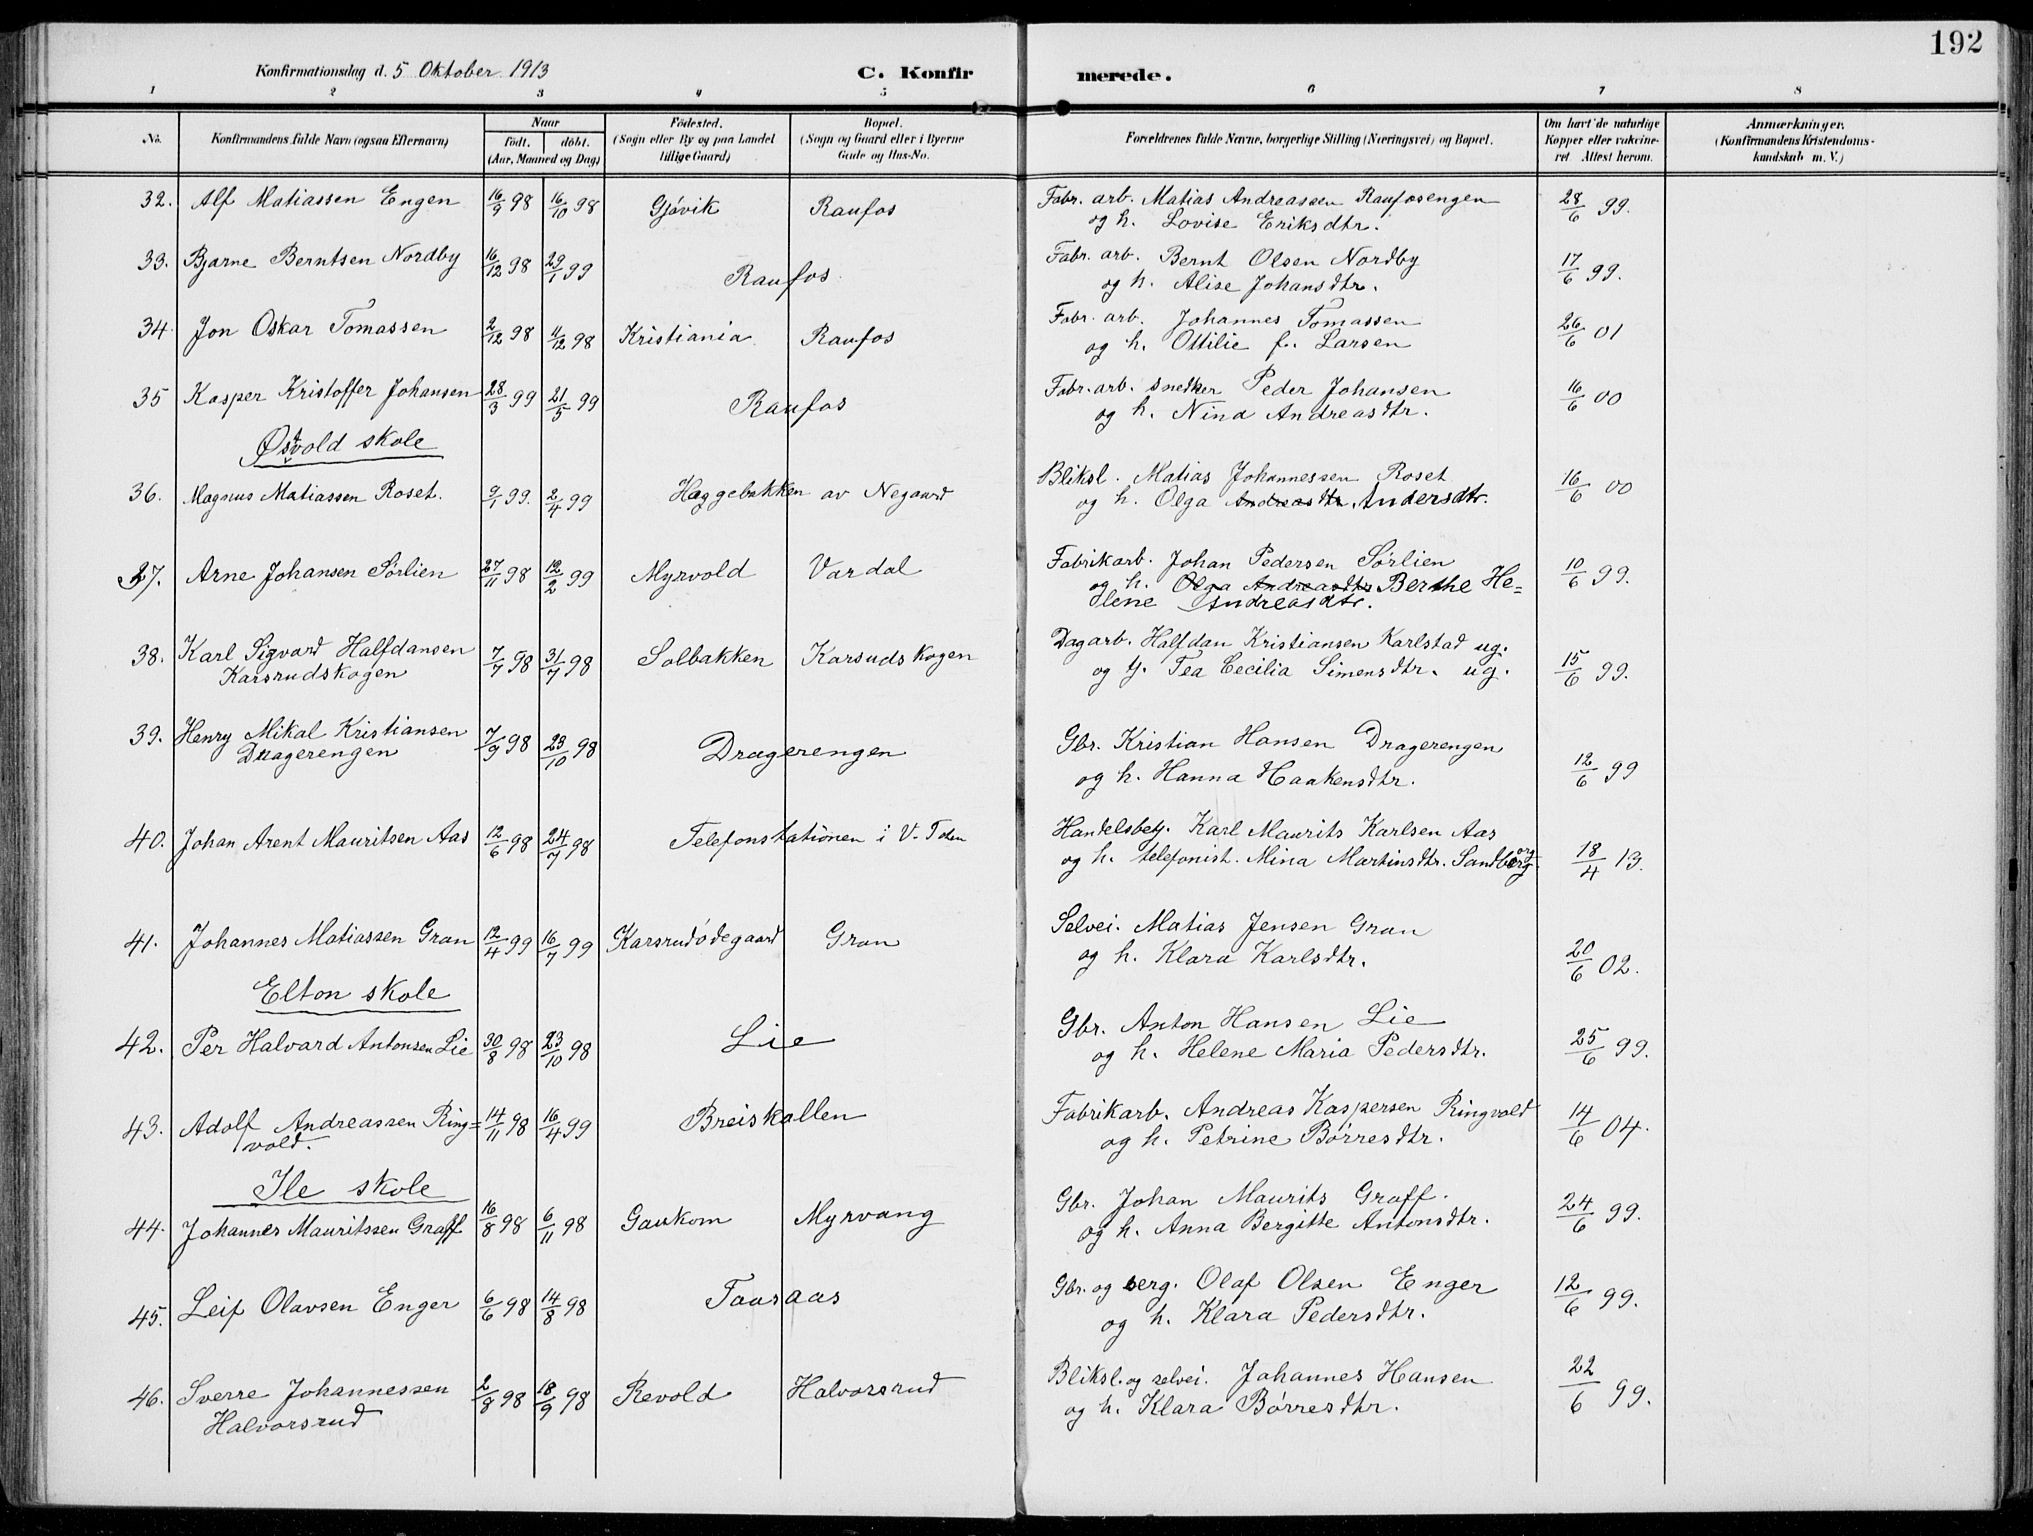 192
Konfirmationsdag d. 5 Oktober 1913 C. Konfirmerede.
1 2 3 4 5 6 7 8
No. Konfirmandens fulde Navn (ogsaa Efternavn) Naar født. døbt. (Aar, Maaned og Dag) Fødested. (Sogn eller By og paa Landet tillige Gaard) Bopæl. (Sogn og Gaard eller i Byerne Gade og Hus-No. Forældrenes fulde Navne, borgerlige Stilling (Næringsvei) og Bopæl. Om havt de naturlige Kopper eller vakcineret Attest herom. Anmærkninger. (Konfirmandens Kristendomskundskab m. V.)
32. Alf Matiassen Engen 16/9 98 16/10 98 Gjøvik Raufos Fabr. arb. Matias Andreassen Raufosengen 28/6 99.
og h. Lovise Eriksdtr.
33. Bjarne Berntsen Nordby 16/12 98 29/1 99 Raufos Fabr. arb. Bernt Olsen Nordby 17/6 99.
og h. Alise Johansdtr.
34 Jon Oskar Tomassen 2/12 98 11/12 98 Kristiania Raufos Fabr. arb. Johannes Tomassen 26/6 01
og h. Ottilie f. Larsen
35 Kasper Kristoffer Johansen 28/3 99 21/5 99 Raufos Fabr. arb. snedker Peder Johansen 16/6 00
og h. Nina Andreasdtr.
Østvold skole
36. Magnus Matiassen Roset. 9/1 99. 2/4 99 Hæggebakken av Negaard Bliksl. Matias Johannessen Roset 16/6 00
og h. Olga Andreasdtr. Andersdtr.
37. Arne Johansen Sørlien 27/11 98 12/2 99 Myrvold Vardal Fabrikarb. Johan Pedersen Sørlien 10/6 99.
og h. Olga Andreasdtr Berthe He=
lene Andreasdtr.
38. Karl Sigvard Halfdansen 7/7 98 31/7 98 Solbakken Karsudskogen Dagarb. Halfdan Kristiansen Karlstad ug. 15/6 99.
Karsrudskogen og Tea Cecilia Simensdtr. ug.
39. Henry Mikal Kristiansen 7/9 98 23/10 98 Dragerengen Gbr. Kristian Hansen Dragerengen 12/6 99
Dragerengen og h. Hanna Haakensdtr.
40. Johan Arent Mauritsen Aas 12/6 98 24/7 98 Telefonstationen i V. Toten Handelsbetj. Karl Maurits Karlsen Aas 18/4 13.
og h. telefonist. Mina Martinsdtr. Sandberg
41. Johannes Matiassen Gran 12/4 99 16/7 99 Karsrudødegaard Gran Selvei. Matias Jensen Gran 20/6 02.
og h. Klara Karlsdtr.
Elton skole
42. Per Halvard Antonsen Lie 30/8 98 23/10 98 Lie Gbr. Anton Hansen Lie 25/6 99.
og h. Helene Maria Pedersdtr.
43. Adolf Andreassen Ring= 14/11 98 16/4 99 Breiskallen Fabrikarb. Andreas Kaspersen Ringvold 14/6 04.
vold. og h. Petrine Børresdtr.
Ile skole
44. Johannes Mauritssen Graff 16/8 98 6/11 98 Gaukom Myrvang Gbr. Johan Maurits Graff. 24/6 99.
og h. Anna Bergitte Antonsdtr.
45. Leif Olavsen Enger 6/6 98 14/8 98 Taasaas Gbr. og serg. Olaf Olsen Enger 12/6 99.
og h. Klara Pedersdtr.
46. Sverre Johannessen 2/8 98 18/9 98 Revold Halvorsrud Bliksl. og selvei. Johannes Hansen 22/6 99.
Halvorsrud og h. Klara Børresdtr.